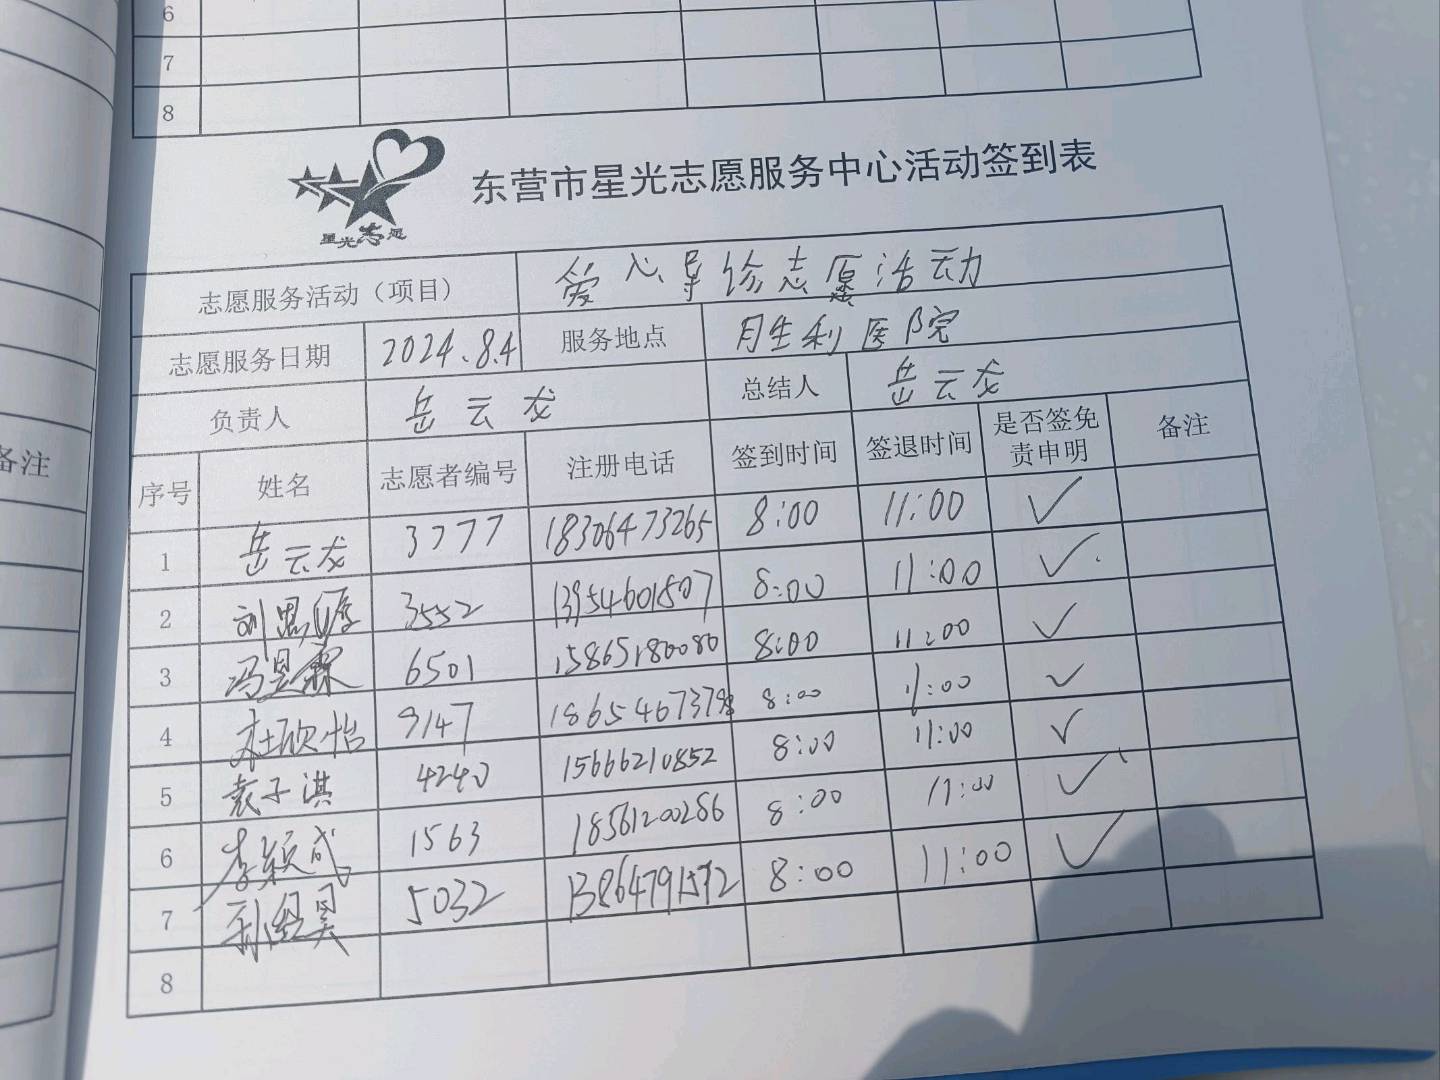 6
7
8
星光志愿
东营市星光志愿服务中心活动签到表
志愿服务活动（项目） 爱心导诊志愿活动
志愿服务日期 2024.8.4 服务地点 月生利医院
负责人 岳云龙 总结人 岳云龙
序号 姓名 志愿者编号 注册电话 签到时间 签退时间 是否签免责申明 备注
1 岳云龙 3777 18306473265 8:00 11:00 ✓
2 3552 13954601507 8:00 11:00 ✓
3 冯昱霖 6501 15865180080 8:00 11:00 ✓
4 杜欣怡 9147 8:00 11:00 ✓
5 袁子淇 4240 15666210852 8:00 11:00 ✓
6 李颖 1563 18561200286 8:00 11:00 ✓
7 孙经昊 5032 13864791572 8:00 11:00 ✓
8
备注